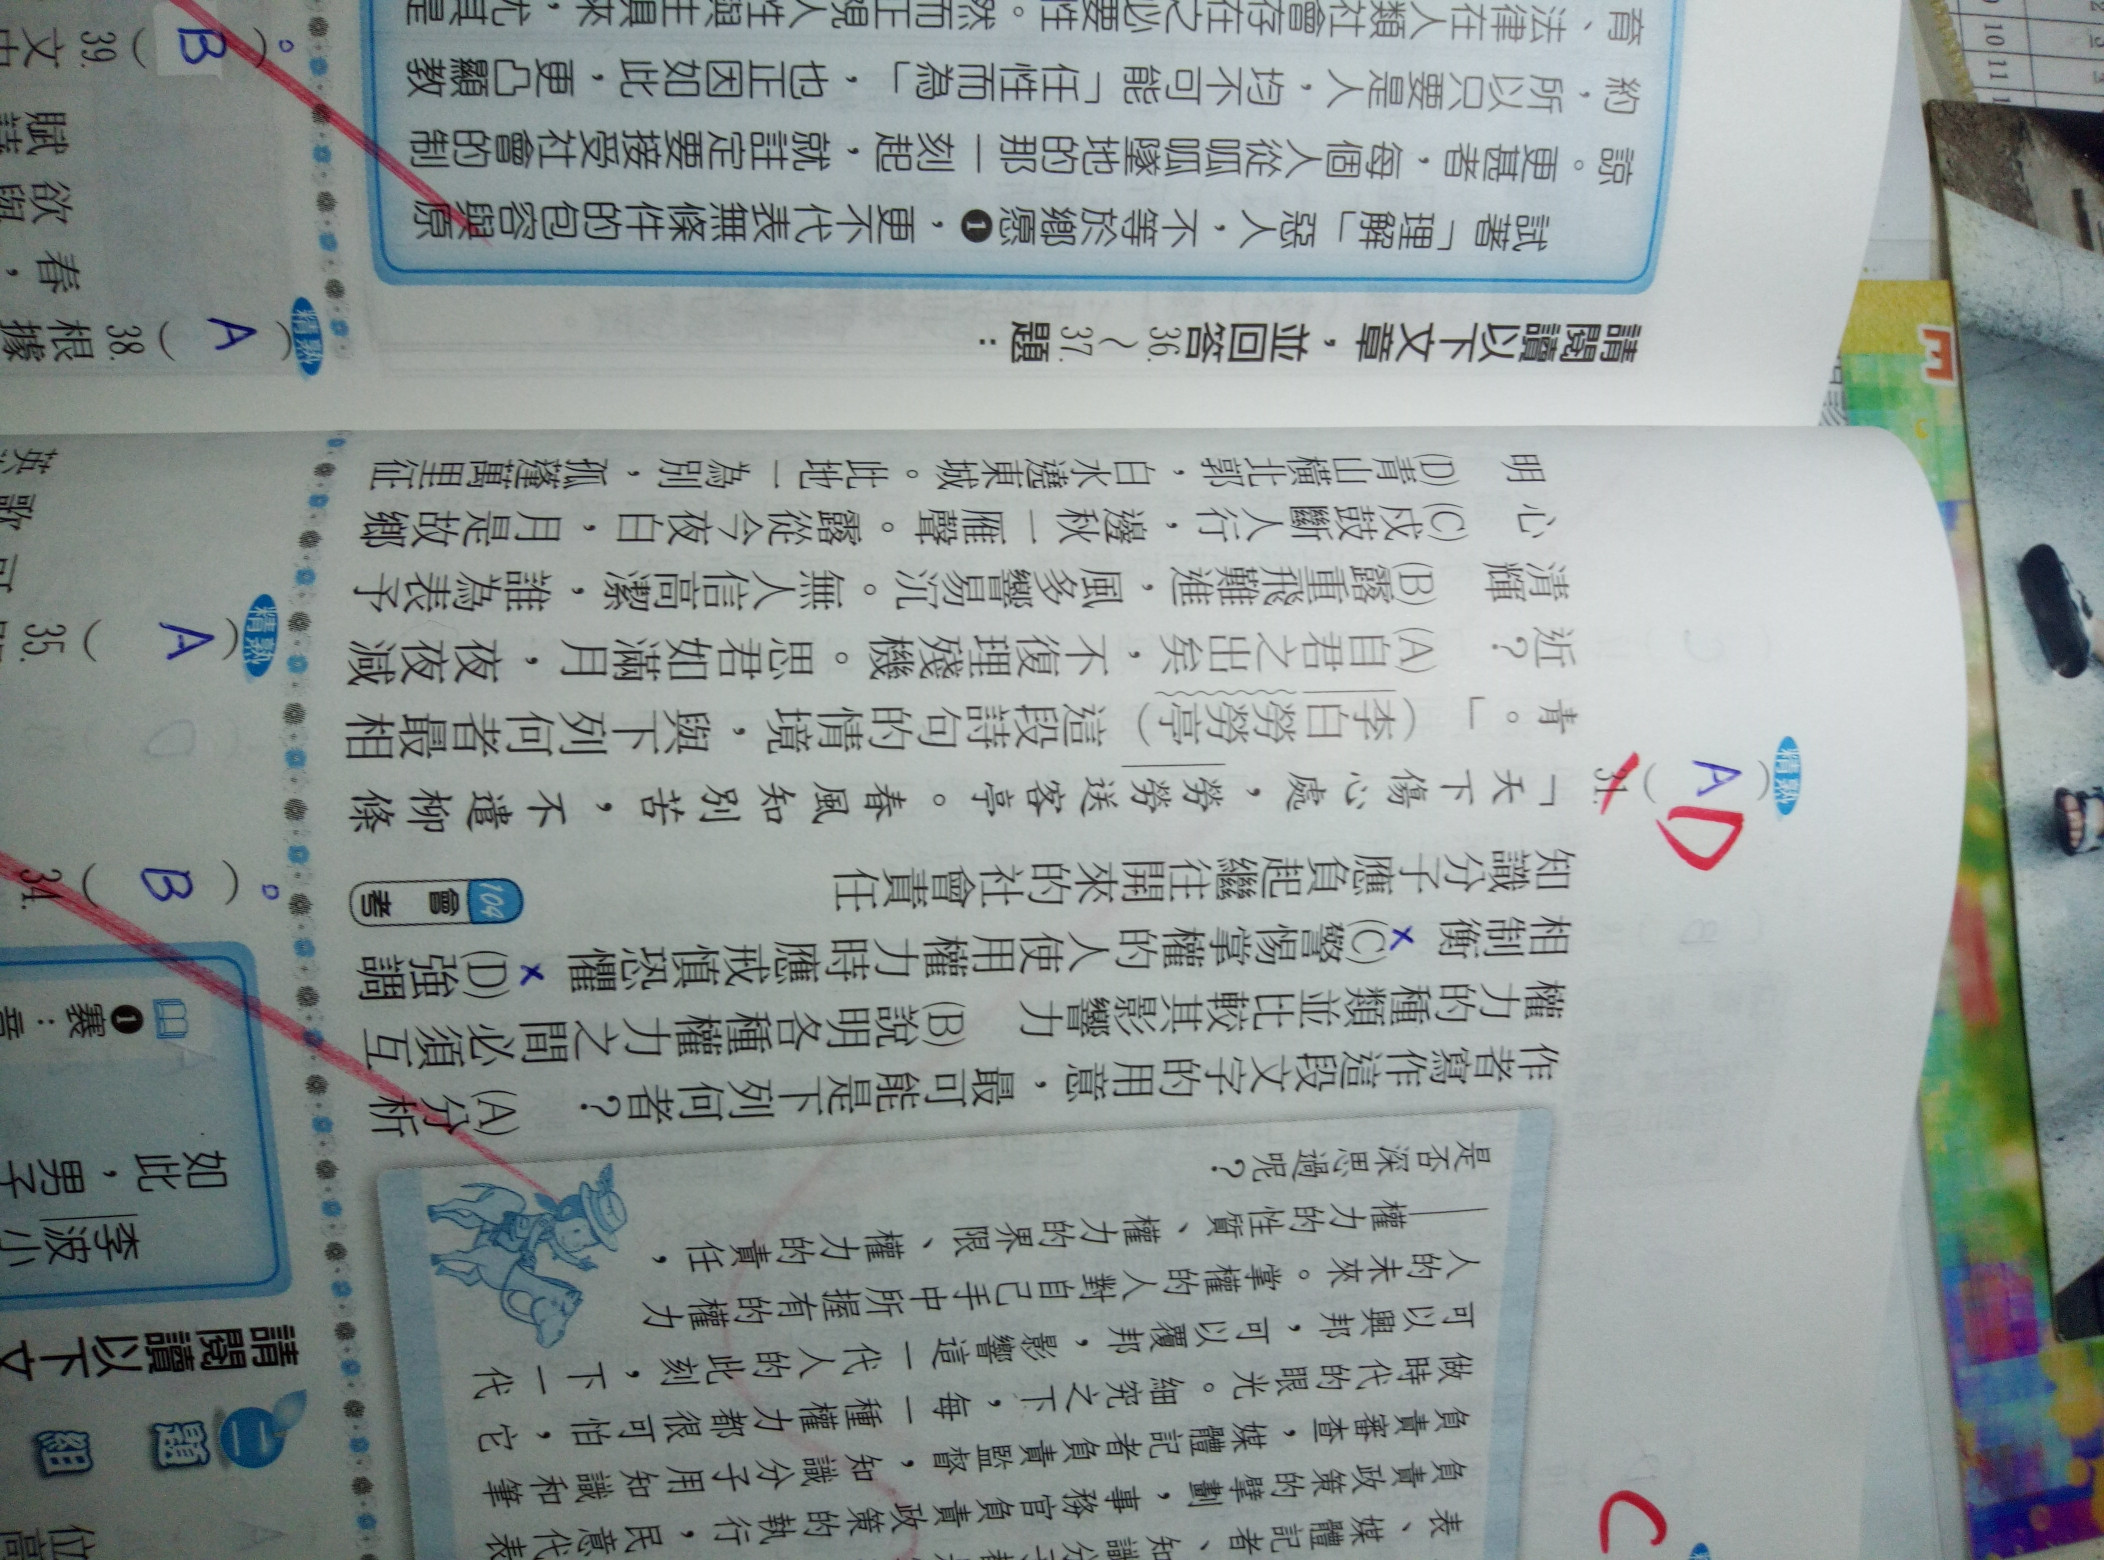 表、媒體記者、知識分子
負責政策的擘劃，事務官負責政策的執行，民意代表
負責審查，媒體記者負責監督，知識分子用知識和筆
做時代的眼光。細究之下，每一種權力都很可怕，它
可以興邦，可以覆邦，影響這一代人的此刻，下一代
人的未來。掌權的人對自己手中所握有的權力
——權力的性質、權力的界限、權力的責任，
是否深思過呢？
作者寫作這段文字的用意，最可能是下列何者？ (A)分析
權力的種類並比較其影響力 (B)說明各種權力之間必須互
相制衡 ×(C)警惕掌權的人使用權力時應戒慎恐懼 ×(D)強調
知識分子應負起繼往開來的社會責任 104 會考
精熟 ( A ) D 31. 「天下傷心處，勞勞送客亭。春風知別苦，不遣柳條
青。」（李白勞勞亭）這段詩句的情境，與下列何者最相
近？ (A)自君之出矣，不復理殘機。思君如滿月，夜夜減
清輝 (B)露重飛難進，風多響易沉。無人信高潔，誰為表予
心 (C)戍鼓斷人行，邊秋一雁聲。露從今夜白，月是故鄉
明 (D)青山橫北郭，白水遶東城。此地一為別，孤蓬萬里征
請閱讀以下文章，並回答 36.～37. 題：
試著「理解」惡人，不等於鄉愿❶，更不代表無條件的包容與原
諒。更甚者，每個人從呱呱墜地的那一刻起，就註定要接受社會的制
約，所以只要是人，均不可能「任性而為」，也正因如此，更凸顯教
育、法律在人類社會存在之必要性。然而正視人性與生具來，尤其是
C
題組
請閱讀以下文
李波小
如此，男子
❶ 褰：
( B ) 34.
精熟 ( A ) 35.
英
歌
可
精熟 ( A ) 38. 根據
春，
欲與
賦詩
( B ) 39. 文中
10 11